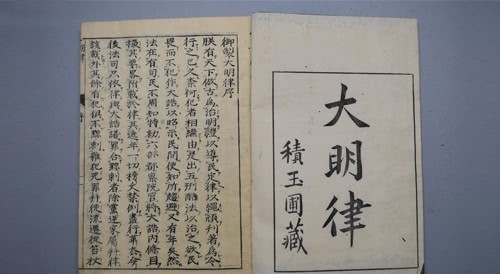 大明律
積玉圃藏
御製大明律序
朕有天下倣古為治明禮以導民定律以繩頑刊著為令
行之已久奈何犯者相繼由是出五刑酷法以治之欲民
畏而不犯作大誥以昭示民間使知所趨避又有年矣然
法在有司民不周知特勑六部都察院官將大誥內條目
撮其要畧附載於律其逓年一切榜文禁例盡行革去今
後法司只依律與大誥議罪合黥刺者除黨逆家屬并律
該載外其餘有犯俱不黥刺雜犯死罪并徒流遷徙笞杖